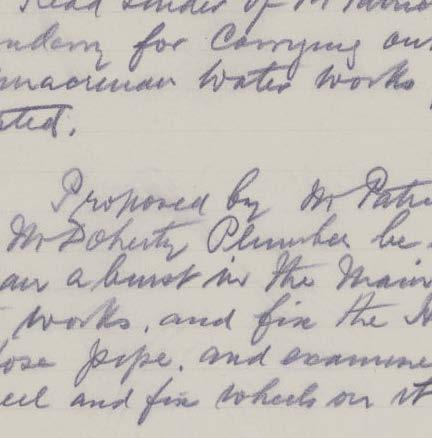 Read tender of Mr Patric
for Carrying out
water works
Proposed by Mr Patri
Mr Doherty Plumber be
a burst in the Main
works, and fix the H
ose pipe, and examine
eel and fix wheels on it